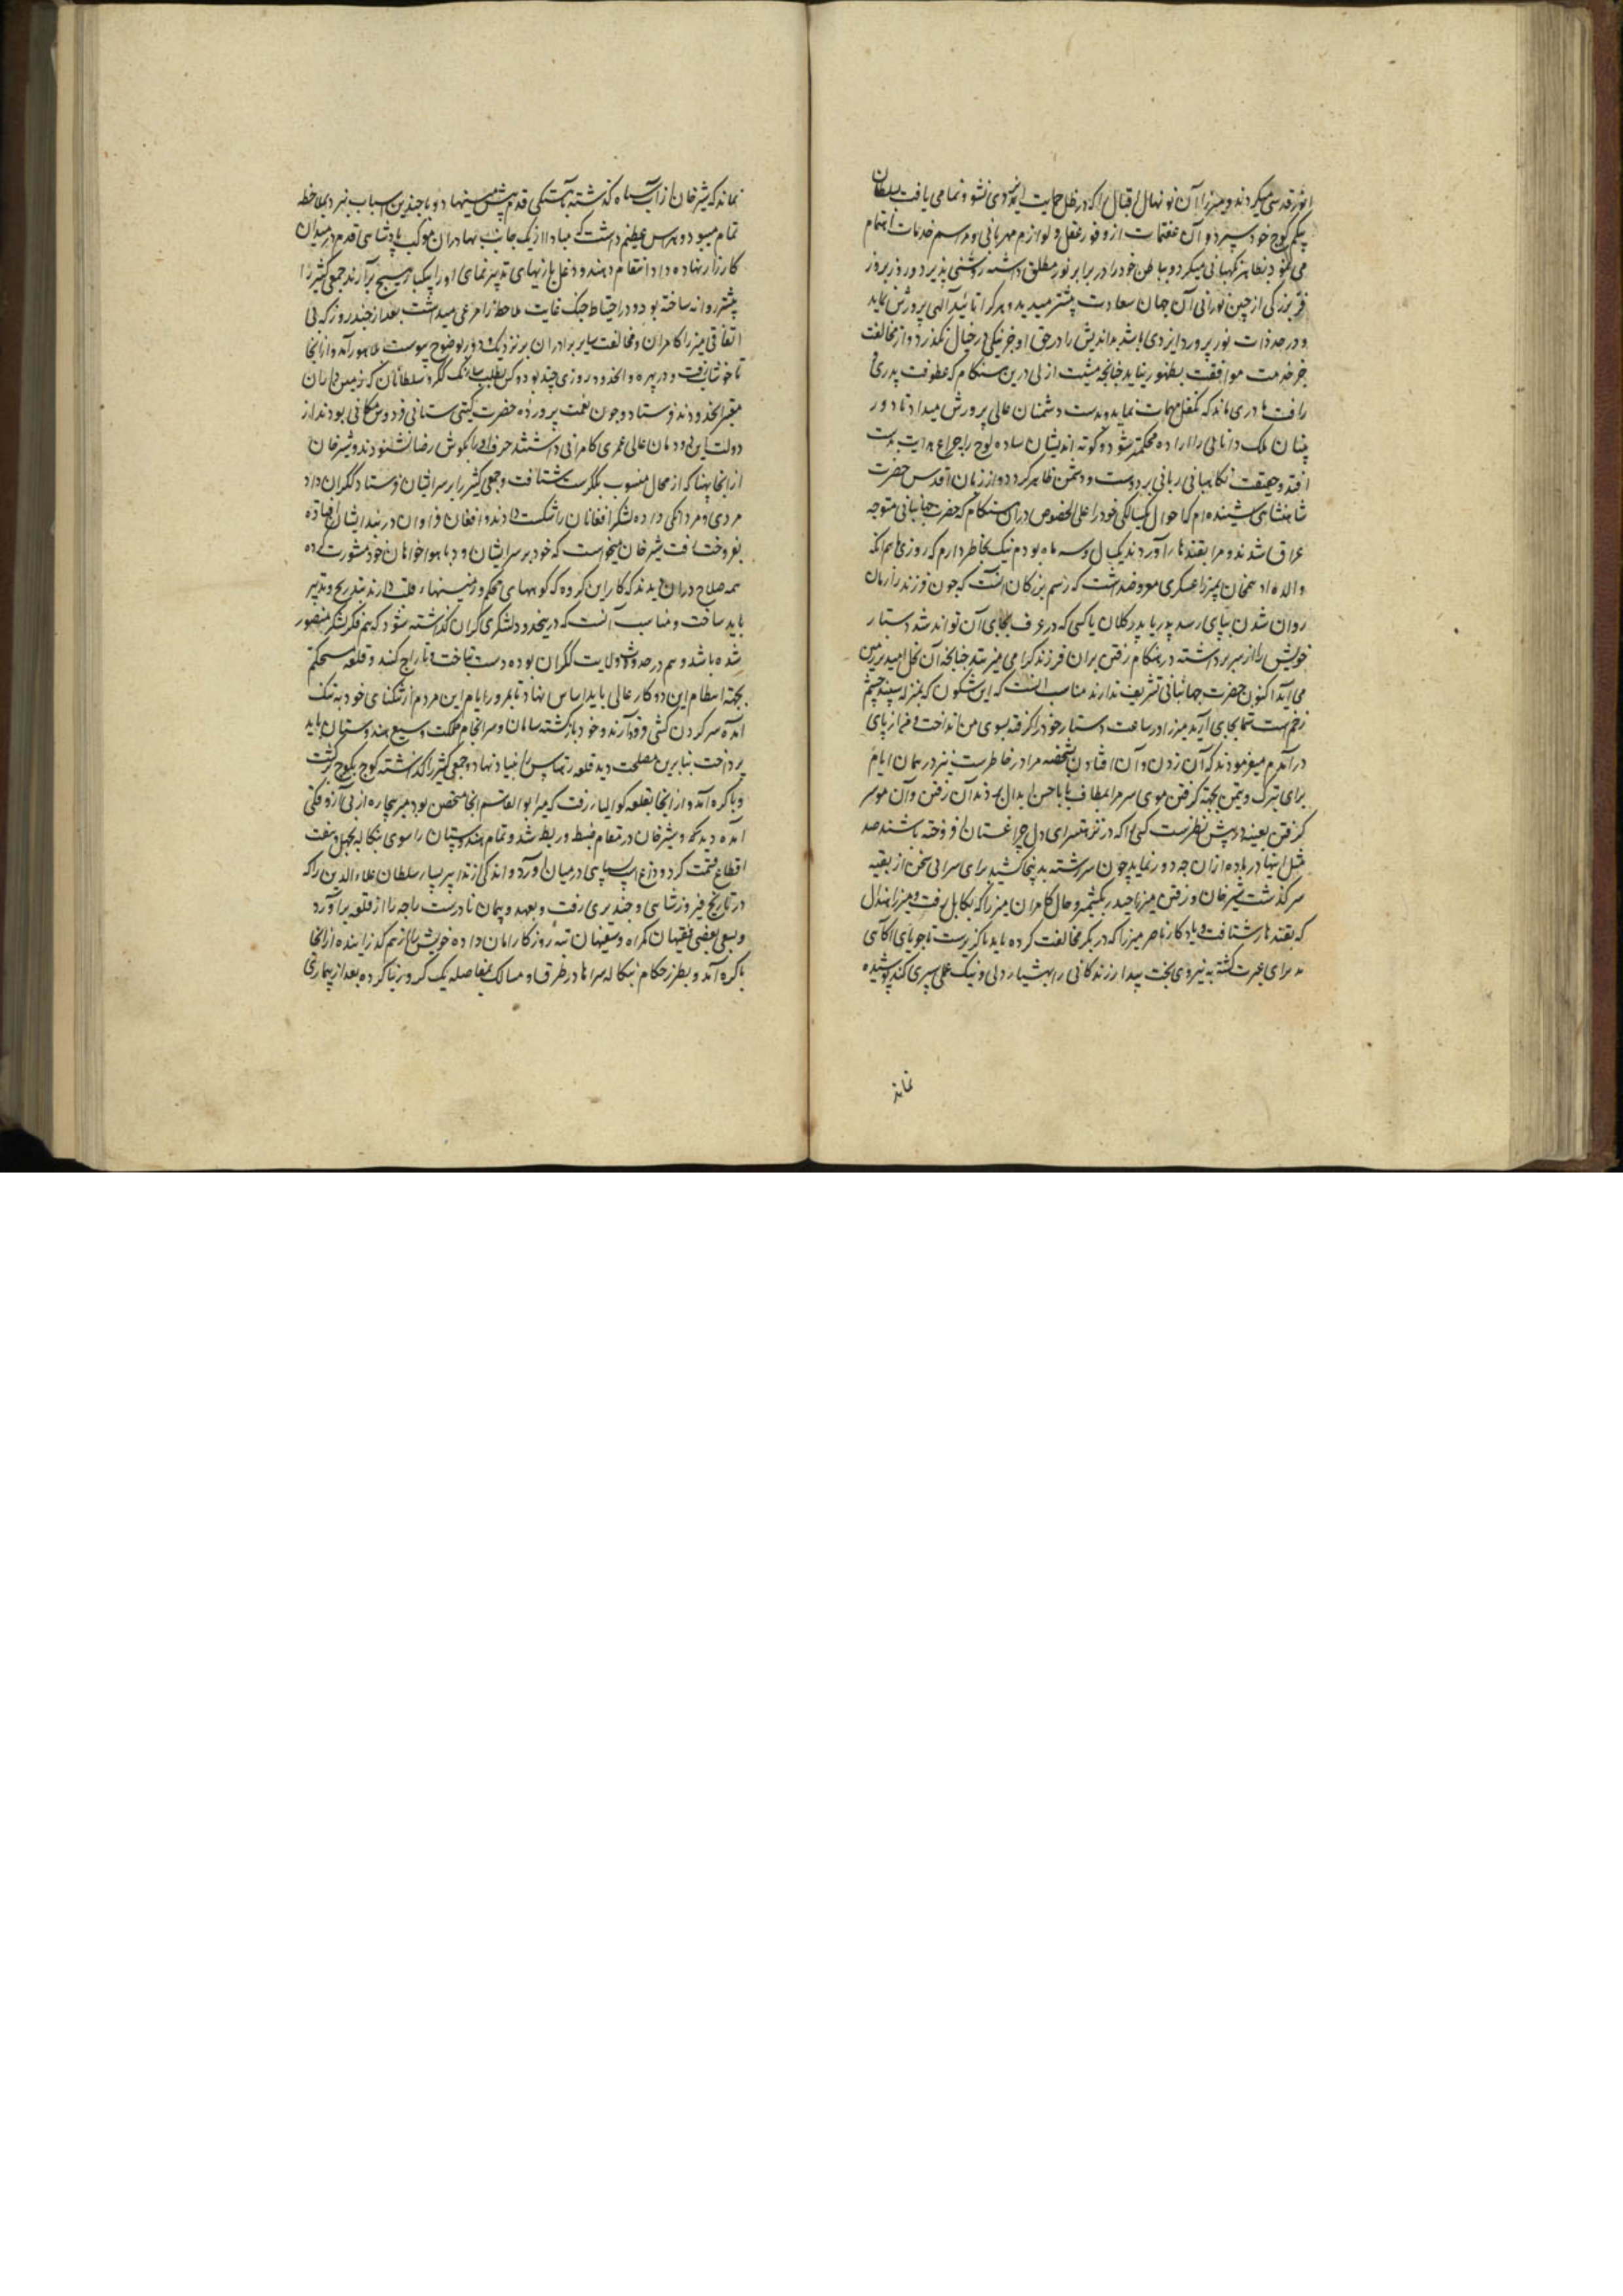 انور قدسی میکردند و میرزا آن نونهال اقبال را که در ظل حمایت ایزدی نشو و نما می یافت بسلطان
بیگم کوچ خود سپرد و آن عفت مآب از وفور عقل و لوازم مهربانی و مراسم خدمات اهتمام
می نمود بظاهر نگهبانی میکرد و باطن خود را در برابر نور مطلق داشته روشنی پذیر و روز بروز
فر بزرگی از جبین نورانی آن جهان سعادت بیشتر میدید و هر کرا تائید آلهی پرورش نماید
و در صد ذات نور پرورد ایزدی باشد بداندیش را در حق او جز نیکی در خیال نگذرد و از مخالفت
جز خدمت موافقت بظهور نیاید چنانچه مشیت ازلی درین هنگام که عطوفت پدری و
رافت مادری نماند که تکفل مهمات نماید بدست دشمنان عالی پرورش میداد تا دور
بینان ملک دانایی را اراده محکمتر شود و کوته اندیشان ساده لوح را چراغ هدایت بدست
افتد و حقیقت نگاهبانی ربانی بر دوست و دشمن ظاهر گردد و از زبان اقدس حضرت
شاهنشاهی شنیده ام که احوال یکسالگی خود را علی الخصوص در آن هنگام که حضرت جهانبانی متوجه
عراق شدند و مرا بقندهار آوردند یک سال و سه ماه بودم نیک بخاطر دارم که روزی ماهم انکه
والده ادهم خان بمیرزا عسکری معروضداشت که رسم بزرگان انست که چون فرزند را زمان
روان شدن بپای رسد پدر یا پدر کلان یا کسی که در عرف بجای آن تواند شد دستار
خویش را از سر برداشته در هنگام رفتن بران فرزند گرامی میزند چنانچه آن نخل امید بزمین
می آید اکنون حضرت جهانبانی تشریف ندارند مناسب انست که این شگون که بمنزله سپند چشم
زخمست شما بجای آرید میرزا در ساعت دستار خود را گرفته بسوی من انداخت و من از پای
در آمدم میفرمودند که آن زدن و آن افتادن بشخصه مرا در خاطرست نیز در همان ایام
برای تبرک و تیمن بجهة گرفتن موی سر مرا بمطاف بابا حسن ابدال بردند آن رفتن و آن موسر
گرفتن بعینه در پیش نظرست کسی را که در نزهتسرای دل چراغستان افروخته باشند صد
مثل اینها در باده ازان چه دور نماید چون سررشته بدینجا کشید برای سرانی سخن از بقیه
سرگذشت شیرخان و رفتن میرزا حیدر بکشمیر و حال کامران میرزا که بکابل رفت و میرزا هندال
که بقندهار شتافت و یادگار ناصر میرزا که در بکر مخالفت کرده بود ناگزیرست تا جویای آگاهی
برای عبرت گشته به نیروی بخت بیدار زندگانی را بهشیار دلی و نیک عملی سپری کند پوشیده
نماند
نماند که شیرخان از آب بیاه گذشته بآهستگی قدم پیش مینهاد و با چندین اسباب نبرد بملاحظه
تمام میبود و هراس عظیم داشت که مبادا از یک جانب بهادران موکب پادشاهی قدم در میدان
کارزار نهاده داد انتقام دهند و دغل بازیهای تدبیر نمای او را یکبار هیچ برآرند جمعی کثیر را
پیشتر روانه ساخته بود و در احتیاط جنگ غایت ملاحظه را مرعی میداشت بعد از چند روز که بی
اتفاقی میرزا کامران و مخالفت سایر برادران بر نزدیک و دور بوضوح پیوست بلاهور آمد و از انجا
تا خوشاب رفت و در بهره و انحدود روزی چند بود و کس بطلب سارنگ گکر و سلطانان که زمینداران
معتبر انحدودند فرستاد و چون نعمت پرورده حضرت گیتی ستانی فردوس مکانی بودند از
دولت این دودمان عالی عمری کامرانی داشتند حرف او را بگوش رضا نشنودند و شیرخان
از انجا بهتیا که از محال منسوب بگکرست شتافت و جمعی کثیر را بر سر ایشان فرستاد گکران داد
مردی و مردانگی داده لشکر افغانان را شکست دادند و افغان فراوان در بند ایشان افتاده
بفروخت رفت شیرخان میخواست که خود بر سر ایشان رود با هواخواهان خود مشورت کرده
همه صلاح دران دیدند که کار این گروه که کوههای محکم و زمینهاء قلب دارند بتدریج و تدبیر
باید ساخت و مناسب آنست که درینحدود لشکری گران گذاشته شود که هم فکر لشکر منصور
شده باشد و هم در حدود ولایت گکران بوده دست بتاخت و تاراج کند و قلعه مستحکم
بجهة انتظام این دو کار عالی باید اساس نهاد تا بمرور ایام این مردم از تنگنای خود به تنگ
آمده سر گردن کشی فرود آرند و خود بازگشته سامان و سرانجام مملکت وسیع هندوستان باید
پرداخت بنابرین مصلحت دید قلعه رهتاس را بنیاد نهاد و جمعی کثیر را گذاشته کوچ بکوچ برگشت
و باگره آمد و از انجا بقلعه گوالیار رفت که میر ابوالقاسم انجا متحصن بود میر بیچاره از بی آزوقگی
آمده دید و شیرخان در مقام ضبط و ربط شد و تمام هندوستان را سوای بنگاله بچهل و هفت
اقطاع قسمت کرد و داغ اسپ سپاهی در میان آورد و اندکی از تدابیر بسیار سلطان علاءالدین را که
در تاریخ فیروز شاهی و چندیری رفت و بعهد و پیمان نادرست راجه را از قلعه برآورد
و بسعی بعضی فقیهان گمراه و سفیهان تبه روزگار امان داده خویش را از هم گذرانیده از انجا
باگره آمد و بطرز حکام بنگاله سراها در طرق و مسالک بفاصله یک کروه بنا کرده بعد از بیماری